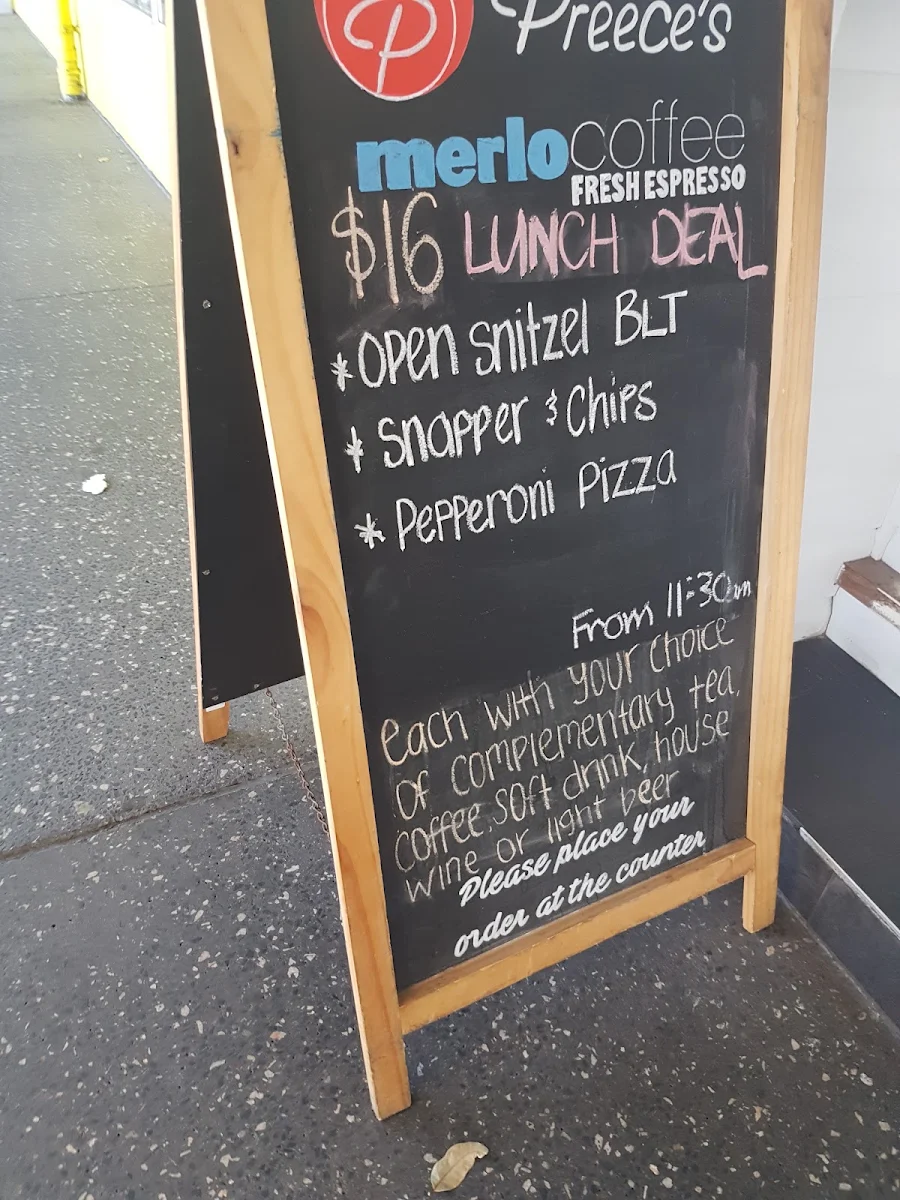 P Preece's
merlo coffee
FRESH ESPRESSO
$16 LUNCH DEAL
* Open Snitzel BLT
* Snapper & Chips
* Pepperoni Pizza
From 11:30am
each with your choice
of complementary tea,
coffee, soft drink, house
wine or light beer
Please place your
order at the counter